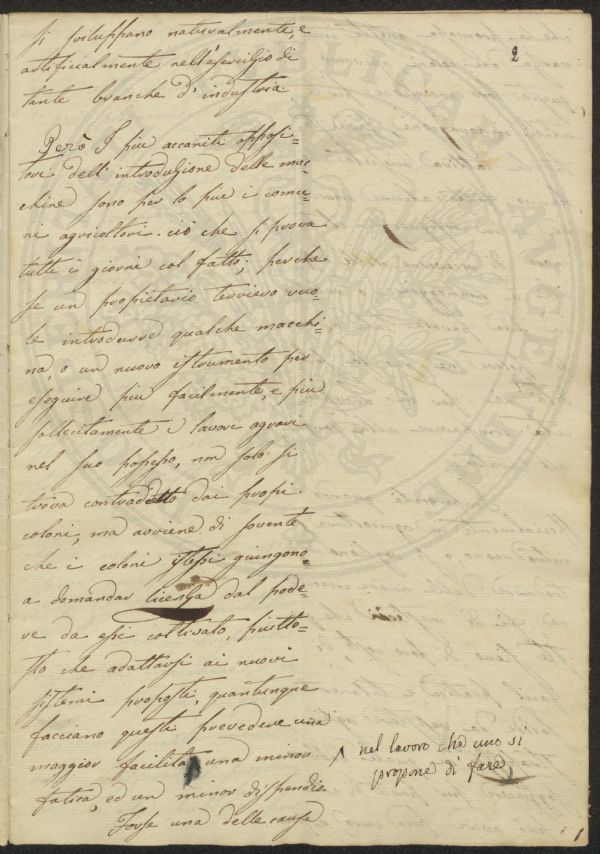 2
si sviluppano naturalmente, e
artificialmente nell'esercizio di
tante branche d'industria.
Però I piu accaniti opposi=
tori dell'introduzione delle mac=
chine sono per lo piu i comu=
ni agricoltori. ciò che si prova
tutti i giorni col fatto; perche
se un propietario terriero vuo=
le introdurre qualche macchi=
na, o un nuovo istrumento per
eseguire piu facilmente, e piu
sollecitamente i lavori agrari
nel suo possesso, non solo si
trova contradetto dai propi
coloni, ma avviene di sovente
che i coloni istessi giungono
a domandar licenza dal pode=
re da essi coltivato, piutto=
sto che adattarsi ai nuovi
sistemi proposti, quantunque
facciano questi prevedere una
maggior facilità, una minor
fatica, ed un minor dispendio
^ nel lavoro che uno si
propone di fare
Forse una delle cause